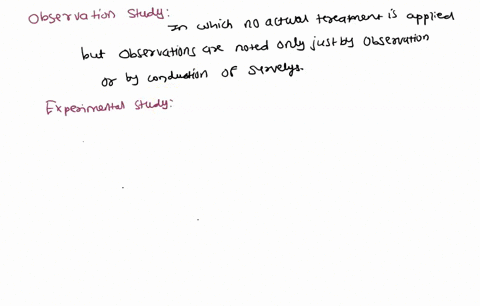 Observation Study:
In which no actual treatment is applied
but observations are noted only just by observation
or by conduction of survelys.
Experimental study: